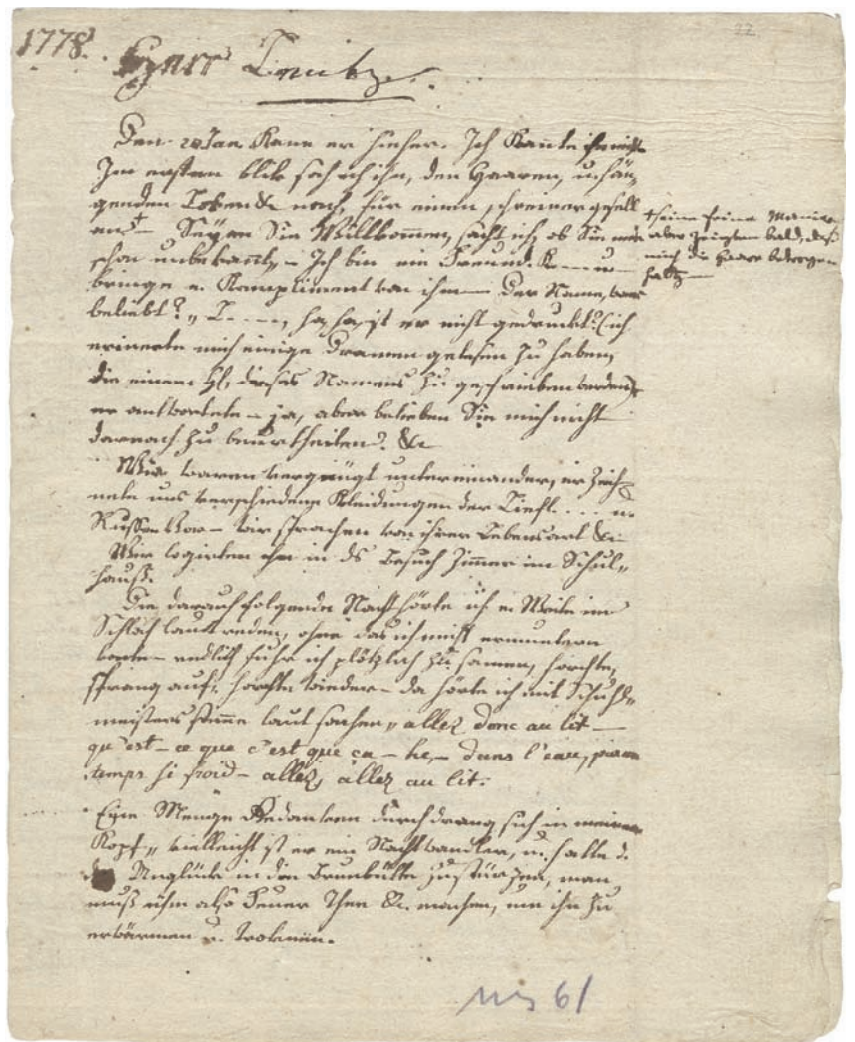 22
1778.
Herr Lenz.
Den 20 Jan. kame er hieher. Ich kannte ihn nicht
Im ersten blik sah ich ihn, den Haaren, u. hän„
genden Loken nach, für einen schreinergesell
an+ Seyen Sie Willkommen, sagt ich, ob Sie mir
schon unbekannt, – Ich bin ein Freund K....... u.
bringe e. Kompliment von ihm – Der Name, wans
beliebt? „ L....., ha, ha, ist er nicht gedruckt? (ich
erinerte mich einige Dramen gelesen zu haben,
die einem H. dieses Namens zugeschrieben werden)
er antwortete – ja, aber belieben Sie mich nicht
darnach zu beurtheilen. &c
+ seine freie Manier
aber zeigten bald, daß
mich die Haare betrogen
hatte –
Wir waren vergnügt untereinander, er zeich„
nete uns verschiedene Kleidungen der Liefl.... u.
Russen vor – wir sprachen von ihrer Lebensart &c
Wir logirten ihn in ds Besuch Zimmer im Schul„
hauß.
Die darauf folgende Nacht hörte ich e. Weile im
Schlaf laut reden, ohne das ich mich ermuntern
konte – endlich fuhr ich plötzlich zusamen, horchte,
sprang auf, horchte wieder – da hörte ich mit Schuhl„
meisters stimme laut sachen „ allez donc au lit –
qu'est – ce que c'est que ça – he, – dans l'eau, par un
temps si froid – allez, allez au lit.
Eine Menge Gedanken durchdrang sich in meinem
Kopf „ vielleicht ist er ein Nachtwandler, u. hatte d.
Unglück in die Brunbütte zustürzen, man
muß ihm also Feuer Thee &c. machen, um ihn zu
erwärmen u. troknen.
61